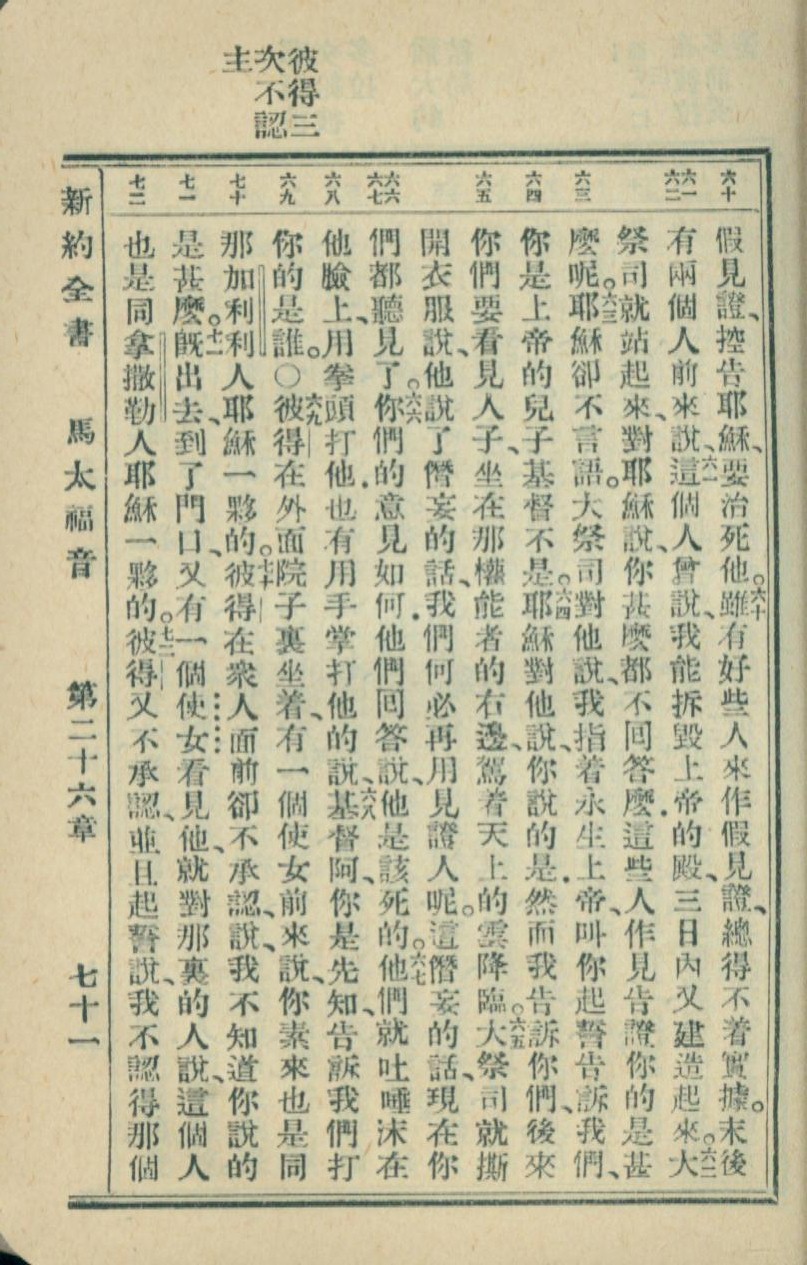 彼得三
次不認
主
六十
六一
六二
六三
六四
六五
六六
六七
六八
六九
七十
七一
七二
假見證、控告耶穌、要治死他。六十雖有好些人來作假見證、總得不着實據。末後
有兩個人前來說、六一這個人曾說、我能拆毀上帝的殿、三日內又建造起來。六二大
祭司就站起來、對耶穌說、你甚麼都不回答麼．這些人作見告證你的是甚
麼呢。六三耶穌卻不言語。大祭司對他說、我指着永生上帝、叫你起誓告訴我們、
你是上帝的兒子基督不是。六四耶穌對他說、你說的是．然而我告訴你們、後來
你們要看見人子、坐在那權能者的右邊、駕着天上的雲降臨。六五大祭司就撕
開衣服說、他說了僭妄的話、我們何必再用見證人呢。這僭妄的話、現在你
們都聽見了。六六你們的意見如何．他們回答說、他是該死的。六七他們就吐唾沫在
他臉上、用拳頭打他．也有用手掌打他的說、六八基督阿、你是先知、告訴我們打
你的是誰。○六九彼得在外面院子裏坐着、有一個使女前來說、你素來也是同
那加利利人耶穌一夥的。七十彼得在衆人面前卻不承認、說、我不知道你說的
是甚麼。七一旣出去、到了門口、又有一個使女看見他、就對那裏的人說、這個人
也是同拿撒勒人耶穌一夥的。七二彼得又不承認、並且起誓說、我不認得那個
新約全書　馬太福音　第二十六章　七十一